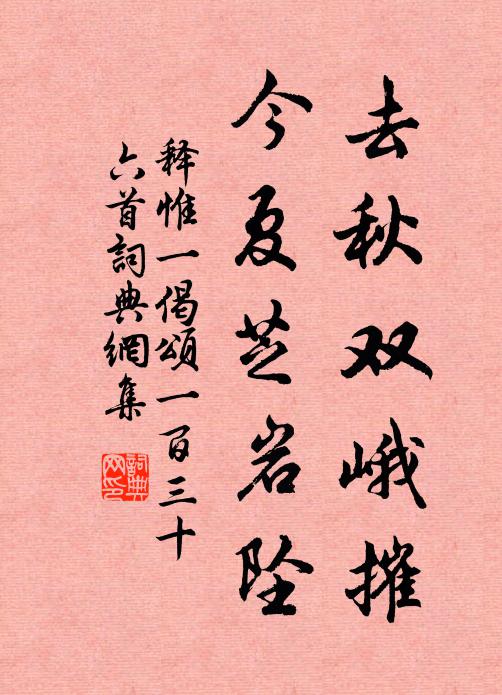 去秋双峨摧
今夏芝岩坠
释惟一偈頌一百三十
六首詞典網集
詞典網印